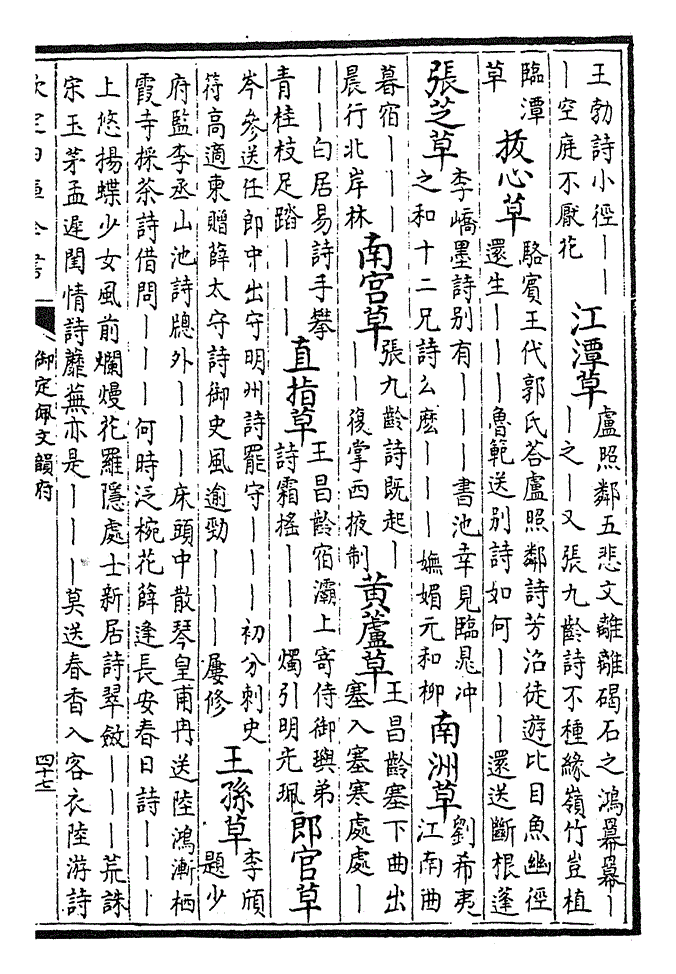 王勃詩小徑｜｜
｜空庭不厭花
江潭草
盧照鄰五悲文離離碣石之鴻冪冪｜
｜之｜又張九齡詩不種緣嶺竹豈植
臨潭
草
拔心草
駱賓王代郭氏荅盧照鄰詩芳沿徒遊比目魚幽徑
還生｜｜｜魯範送别詩如何｜｜｜還送斷根蓬
張芝草
李嶠墨詩别有｜｜｜書池幸見臨晁冲
之和十二兄詩么麽｜｜｜嫵媚元和柳
南洲草
劉希夷
江南曲
暮宿｜｜｜
晨行北岸林
南宫草
張九齡詩既起｜
｜｜復掌西掖制
黄蘆草
王昌齡塞下曲出
塞入塞寒處處｜
｜｜白居易詩手攀
青桂枝足踏｜｜｜
直指草
王昌齡宿灞上寄侍御璵弟
詩霜摇｜｜｜燭引明光珮
郎官草
岑參送任郎中出守明州詩罷守｜｜｜初分刺史
符高適柬贈薛太守詩御史風逾勁｜｜｜屢修
王孫草
李頎
題少
府監李丞山池詩牕外｜｜｜床頭中散琴皇甫冉送陸鴻漸栖
霞寺採茶詩借問｜｜｜何時泛椀花薛逢長安春日詩｜｜｜
上悠揚蝶少女風前爛熳花羅隱處士新居詩翠斂｜｜｜荒誅
宋玉茅孟遲閨情詩蘼蕪亦是｜｜｜莫送春香入客衣陸游詩
欽定四庫全書
御定佩文韻府
四十七